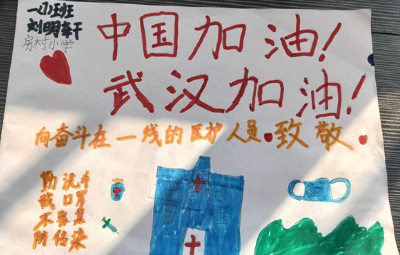 一(1)班
刘明轩
房村小学
中国加油!
武汉加油!
向奋斗在一线的医护人员致敬
勤洗手
戴口罩
不聚集
防传染